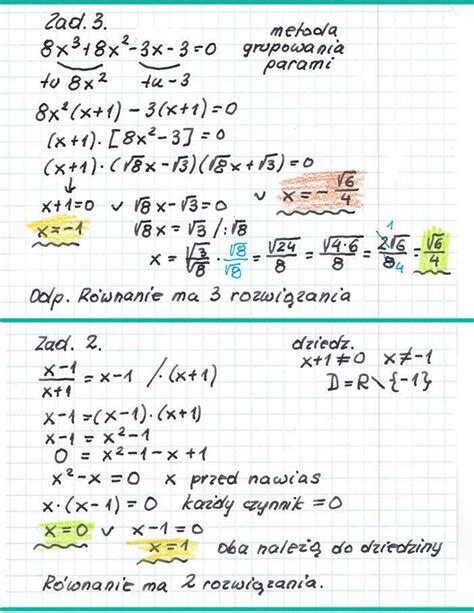 Zad. 3.
8x³+8x²-3x-3=0 metoda grupowania parami
tu 8x² tu -3
8x²(x+1) - 3(x+1)=0
(x+1)·[8x²-3]=0
(x+1)·(√8x-√3)(√8x+√3)=0
x+1=0 ∨ √8x-√3=0 ∨ x=-√6/4
x=-1 √8x=√3 /:√8
x=√3/√8·√8/√8=√24/8=√(4·6)/8=2√6/8=√6/4
1
4
Odp. Równanie ma 3 rozwiązania
Zad. 2. dziedz.
x+1≠0 x≠-1
(x-1)/(x+1)=x-1 /·(x+1) D=R\{-1}
x-1=(x-1)·(x+1)
x-1=x²-1
0=x²-1-x+1
x²-x=0 x przed nawias
x·(x-1)=0 każdy czynnik=0
x=0 ∨ x-1=0
x=1 Oba należą do dziedziny
Równanie ma 2 rozwiązania.